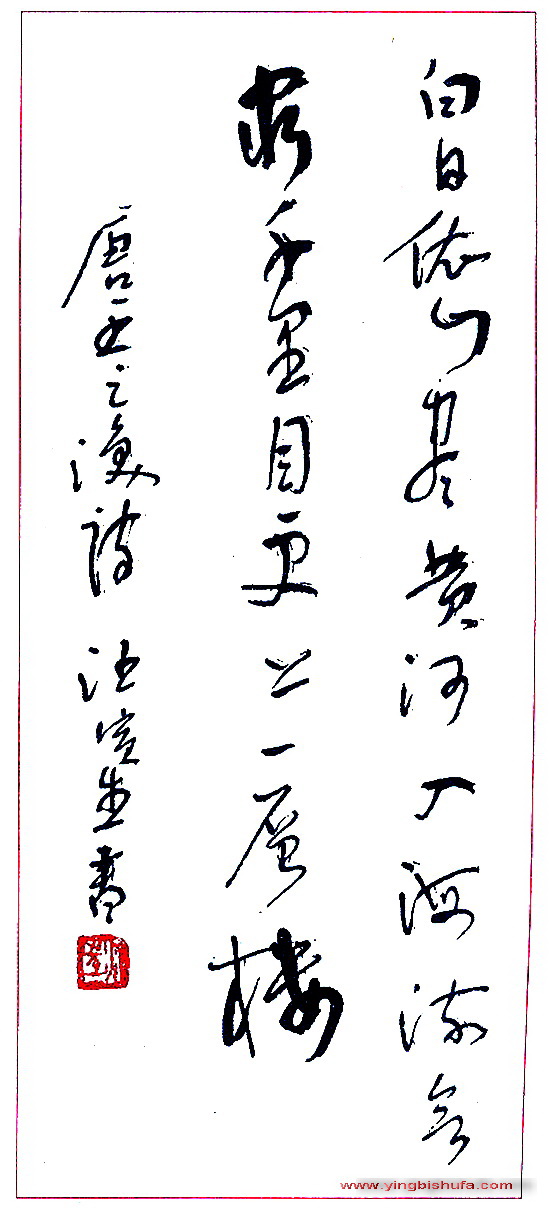 白日依山尽黄河入海流欲
穷千里目更上一层楼
唐王之涣诗 汪寅生书
www.yingbishufa.com